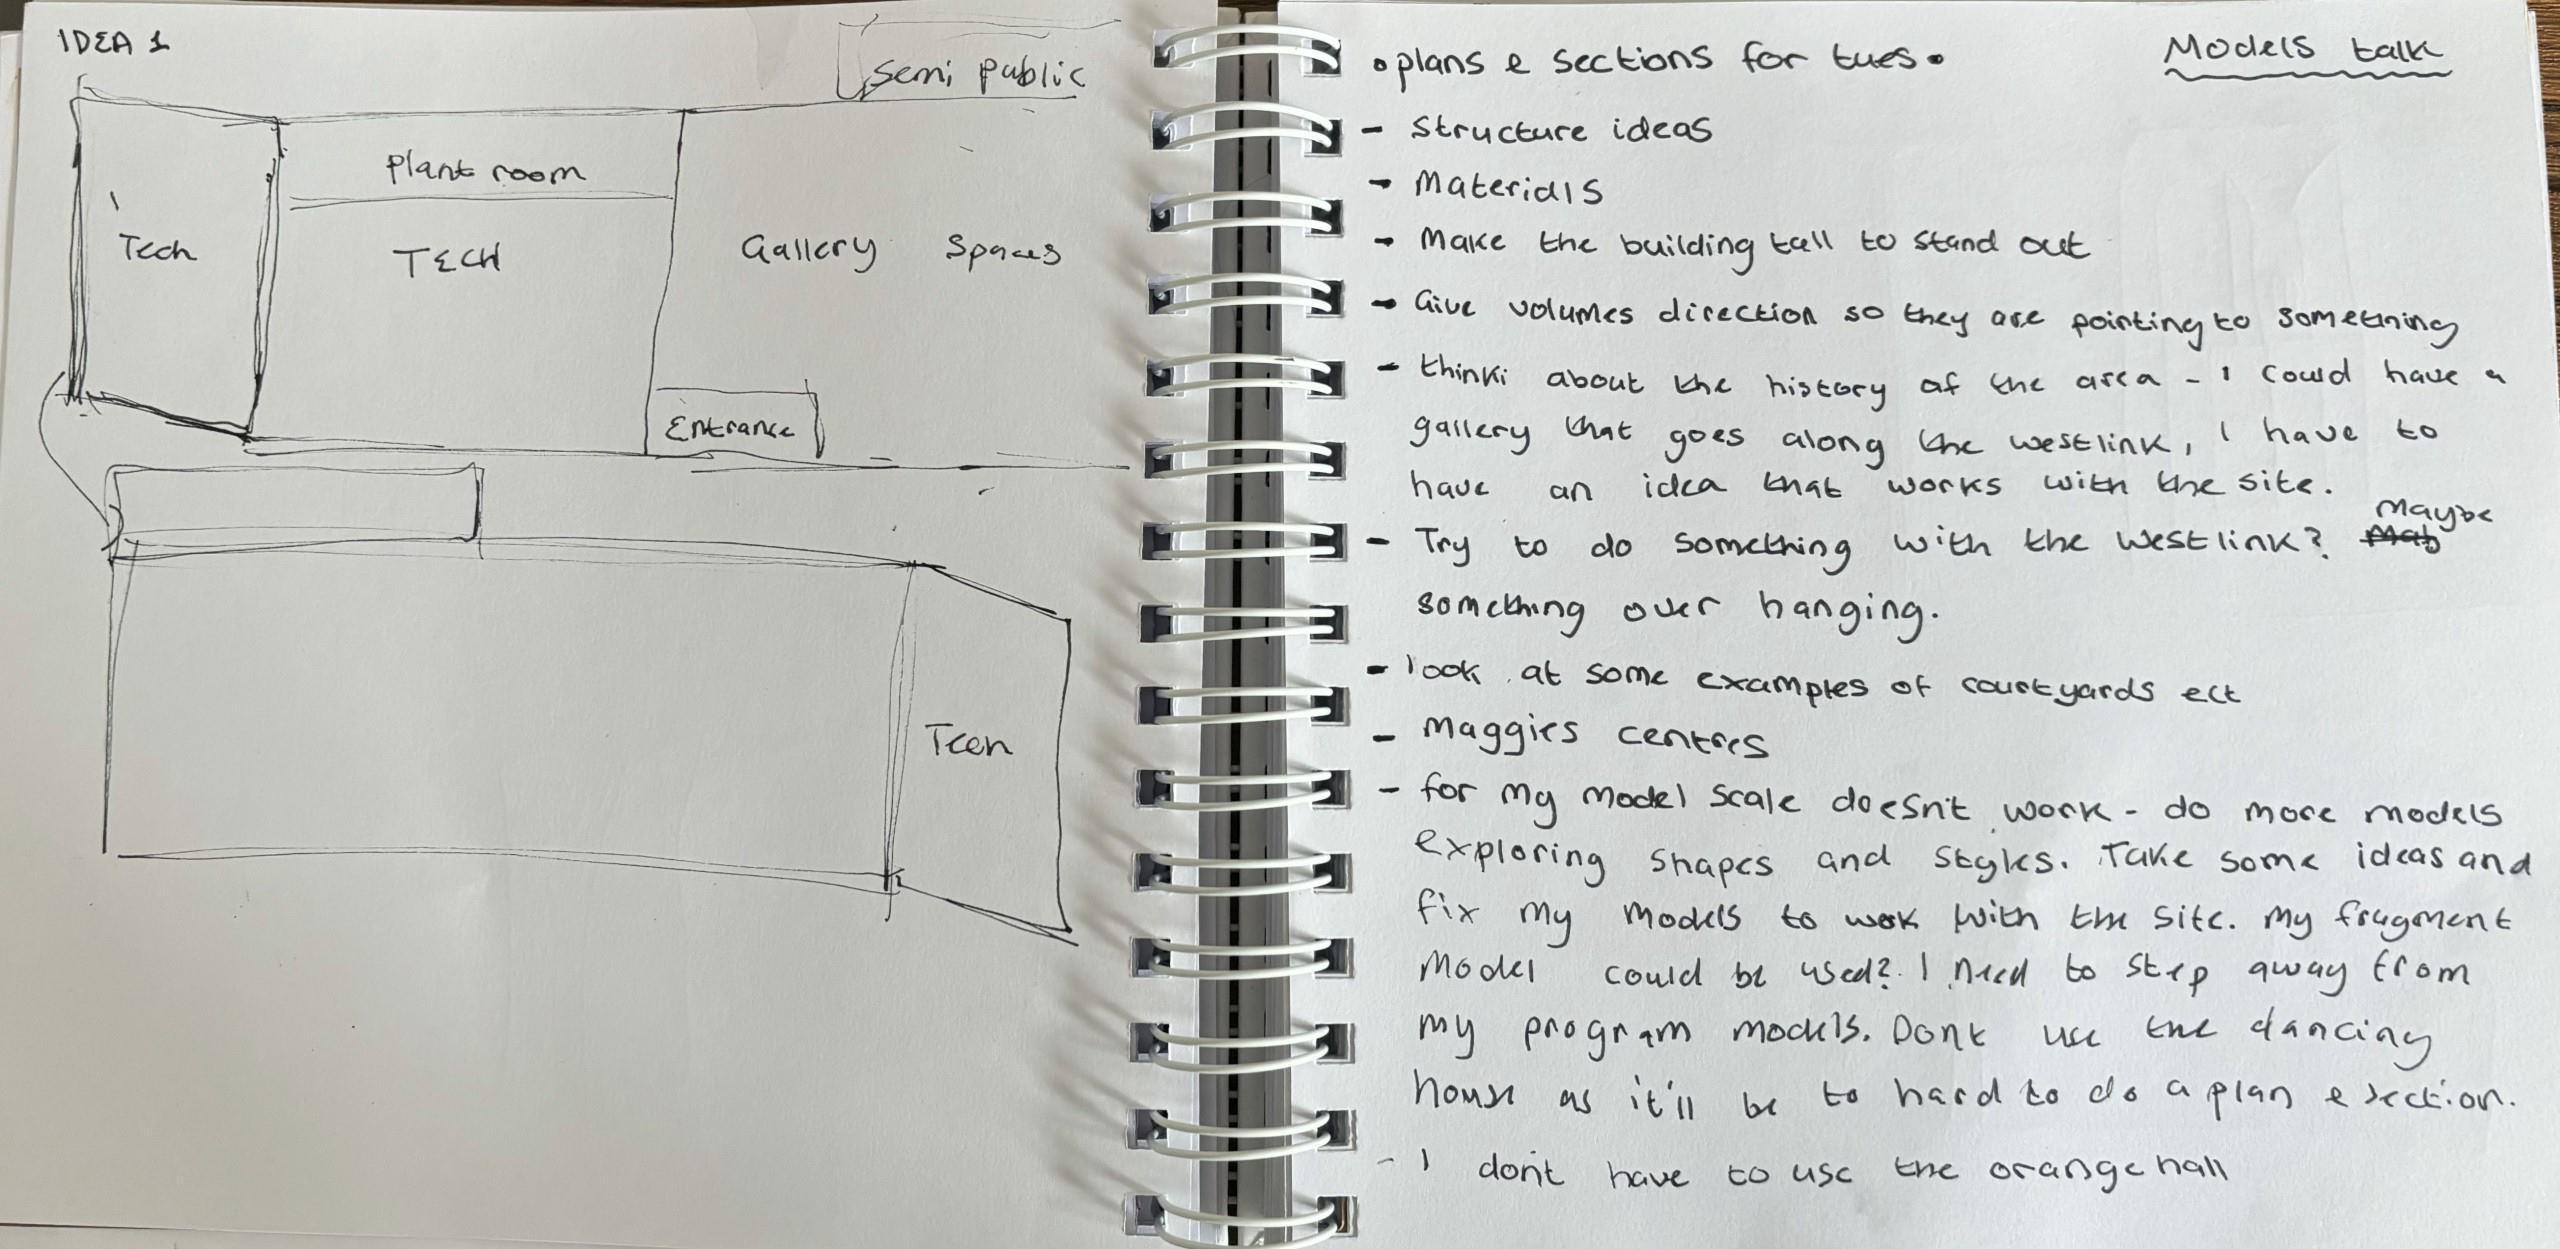 IDEA 1
Semi public
Plant room
Tech
TECH
Gallery Spaces
Entrance
Tech
Models talk
• plans & sections for tues •
- Structure ideas
- Materials
- Make the building tall to stand out
- Give volumes direction so they are pointing to something
- thinki about the history of the area - I could have a
gallery that goes along the westlink, I have to
have an idea that works with the site.
- Try to do something with the westlink? Mab Maybe
something over hanging.
- look at some examples of courtyards ect
- Maggies centres
- for my model scale doesn't work - do more models
exploring shapes and styles. Take some ideas and
fix my models to work with the site. My fragment
model could be used? I need to step away from
my program models. Dont use the dancing
house as it'll be to hard to do a plan & section.
- I don't have to use the orange hall